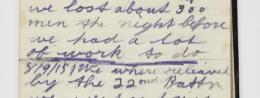 we lost about 300
men the night before
we had a lot
of work to do
8/9/15 We where releaved
by the 22nd Battn